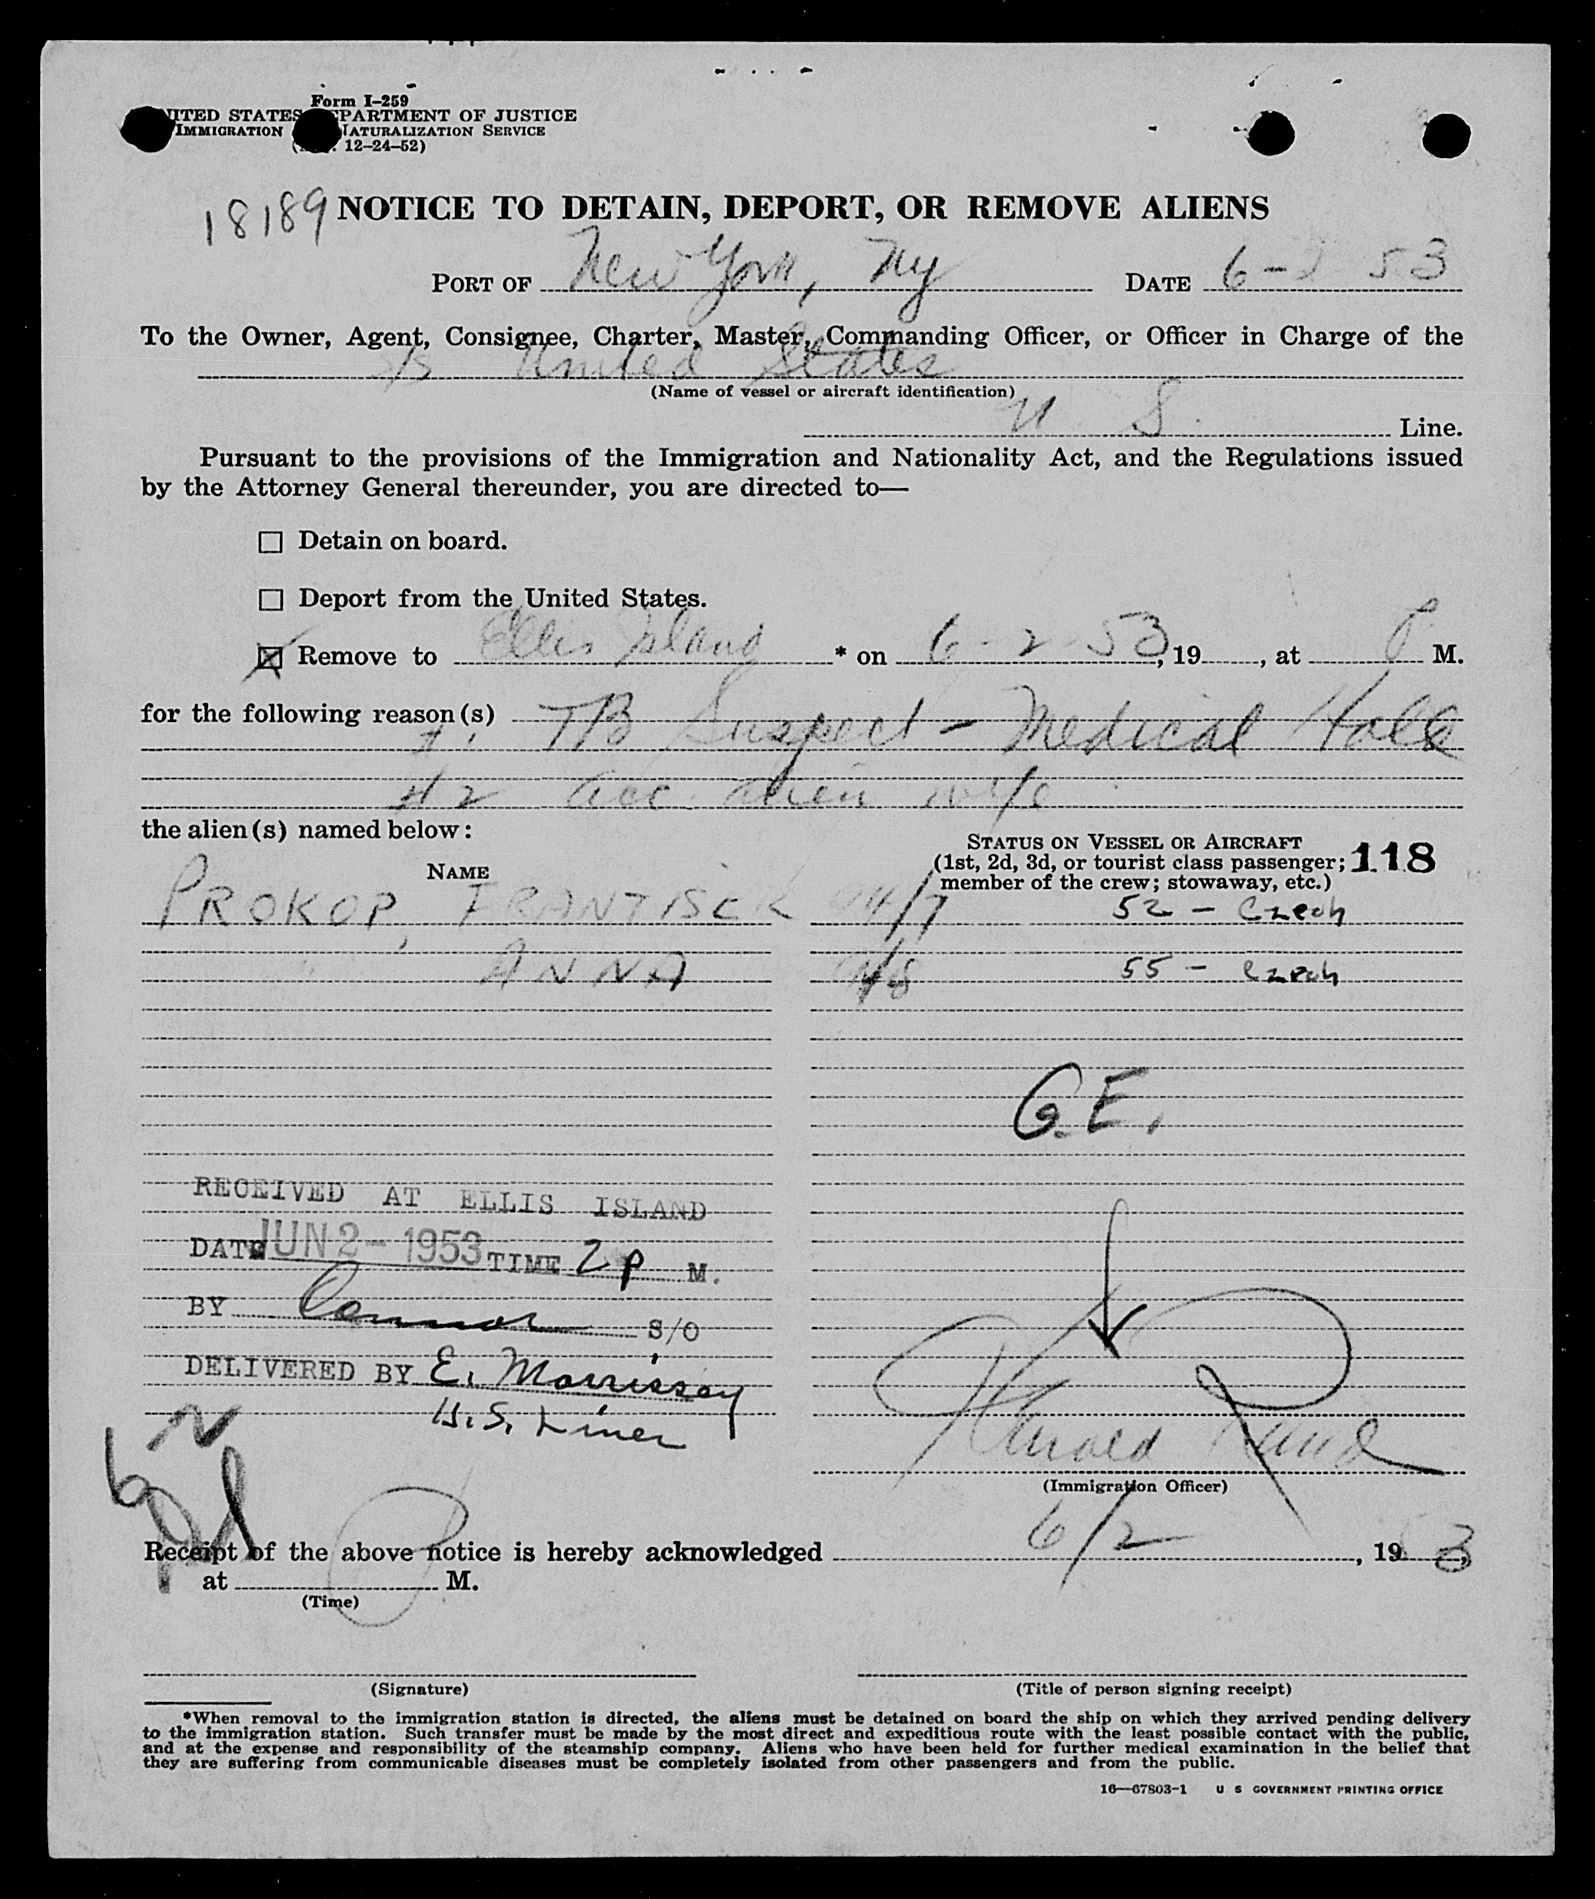 Form I-259
UNITED STATES DEPARTMENT OF JUSTICE
IMMIGRATION NATURALIZATION SERVICE
12-24-52)
18189 NOTICE TO DETAIN, DEPORT, OR REMOVE ALIENS
PORT OF New York, Ny DATE 6-2 53
To the Owner, Agent, Consignee, Charter, Master, Commanding Officer, or Officer in Charge of the
United States
(Name of vessel or aircraft identification)
U. S. Line.
Pursuant to the provisions of the Immigration and Nationality Act, and the Regulations issued
by the Attorney General thereunder, you are directed to—
☐ Detain on board.
☐ Deport from the United States.
☒ Remove to Ellis Island * on 6-2-53, 19, at P M.
for the following reason(s) TB Suspect - Medical Hold
#1
#2 acc. alien wife
the alien(s) named below:
NAME
STATUS ON VESSEL OR AIRCRAFT
(1st, 2d, 3d, or tourist class passenger;
member of the crew; stowaway, etc.)
118
PROKOP, FRANTISEK 14/7 52 - Czech
ANNA 14/8 55 - Czech
G.E.
RECEIVED AT ELLIS ISLAND
DATE JUN 2 - 1953 TIME 2 P M.
BY Connor S/O
DELIVERED BY E. Morrissey
U.S. Liner
Harold Rand
(Immigration Officer)
Receipt of the above notice is hereby acknowledged 6/2, 1953
at M.
(Time)
(Signature)
(Title of person signing receipt)
*When removal to the immigration station is directed, the aliens must be detained on board the ship on which they arrived pending delivery
to the immigration station. Such transfer must be made by the most direct and expeditious route with the least possible contact with the public,
and at the expense and responsibility of the steamship company. Aliens who have been held for further medical examination in the belief that
they are suffering from communicable diseases must be completely isolated from other passengers and from the public.
16—67803-1 U S GOVERNMENT PRINTING OFFICE